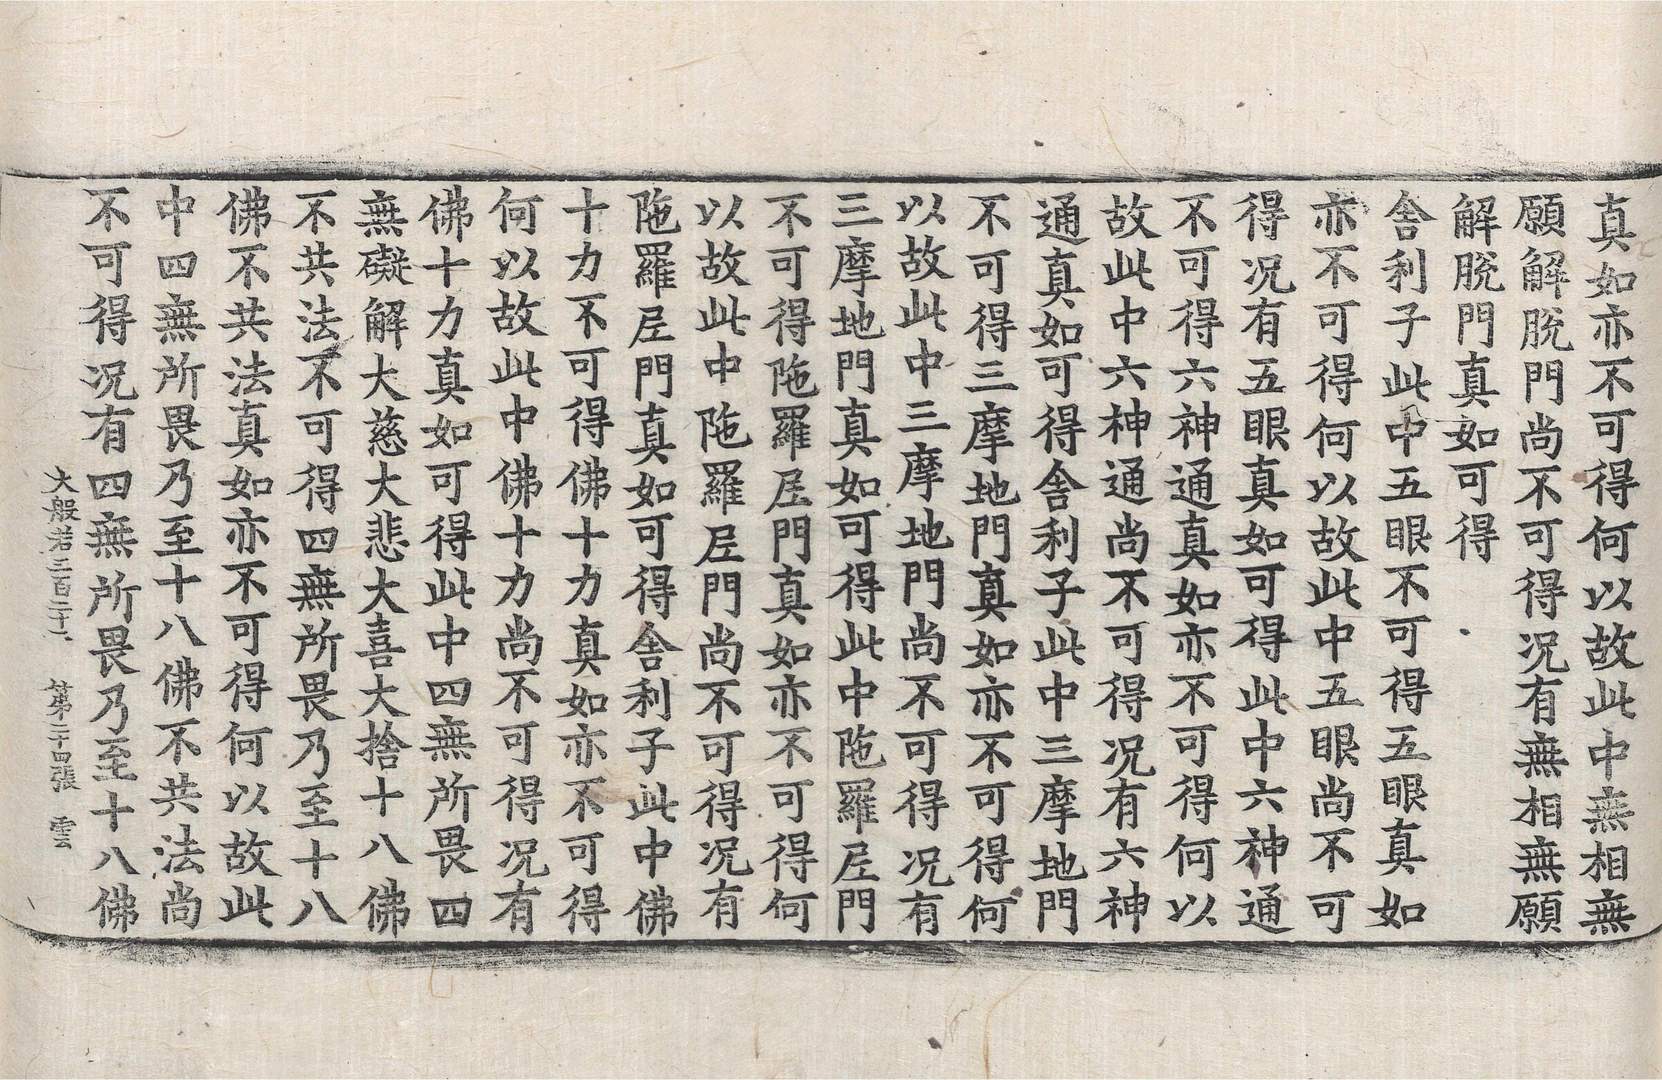 真如亦不可得何以故此中無相無
願解脫門尚不可得况有無相無願
解脫門真如可得
舎利子此中五眼不可得五眼真如
亦不可得何以故此中五眼尚不可
得况有五眼真如可得此中六神通
不可得六神通真如亦不可得何以
故此中六神通尚不可得况有六神
通真如可得舎利子此中三摩地門
不可得三摩地門真如亦不可得何
以故此中三摩地門尚不可得况有
三摩地門真如可得此中陁羅尼門
不可得陁羅尼門真如亦不可得何
以故此中陁羅尼門尚不可得况有
陁羅尼門真如可得舎利子此中佛
十力不可得佛十力真如亦不可得
何以故此中佛十力尚不可得况有
佛十力真如可得此中四無所畏四
無礙解大慈大悲大喜大捨十八佛
不共法不可得四無所畏乃至十八
佛不共法真如亦不可得何以故此
中四無所畏乃至十八佛不共法尚
不可得况有四無所畏乃至十八佛
大般若三百二十六 第二十四張 雲